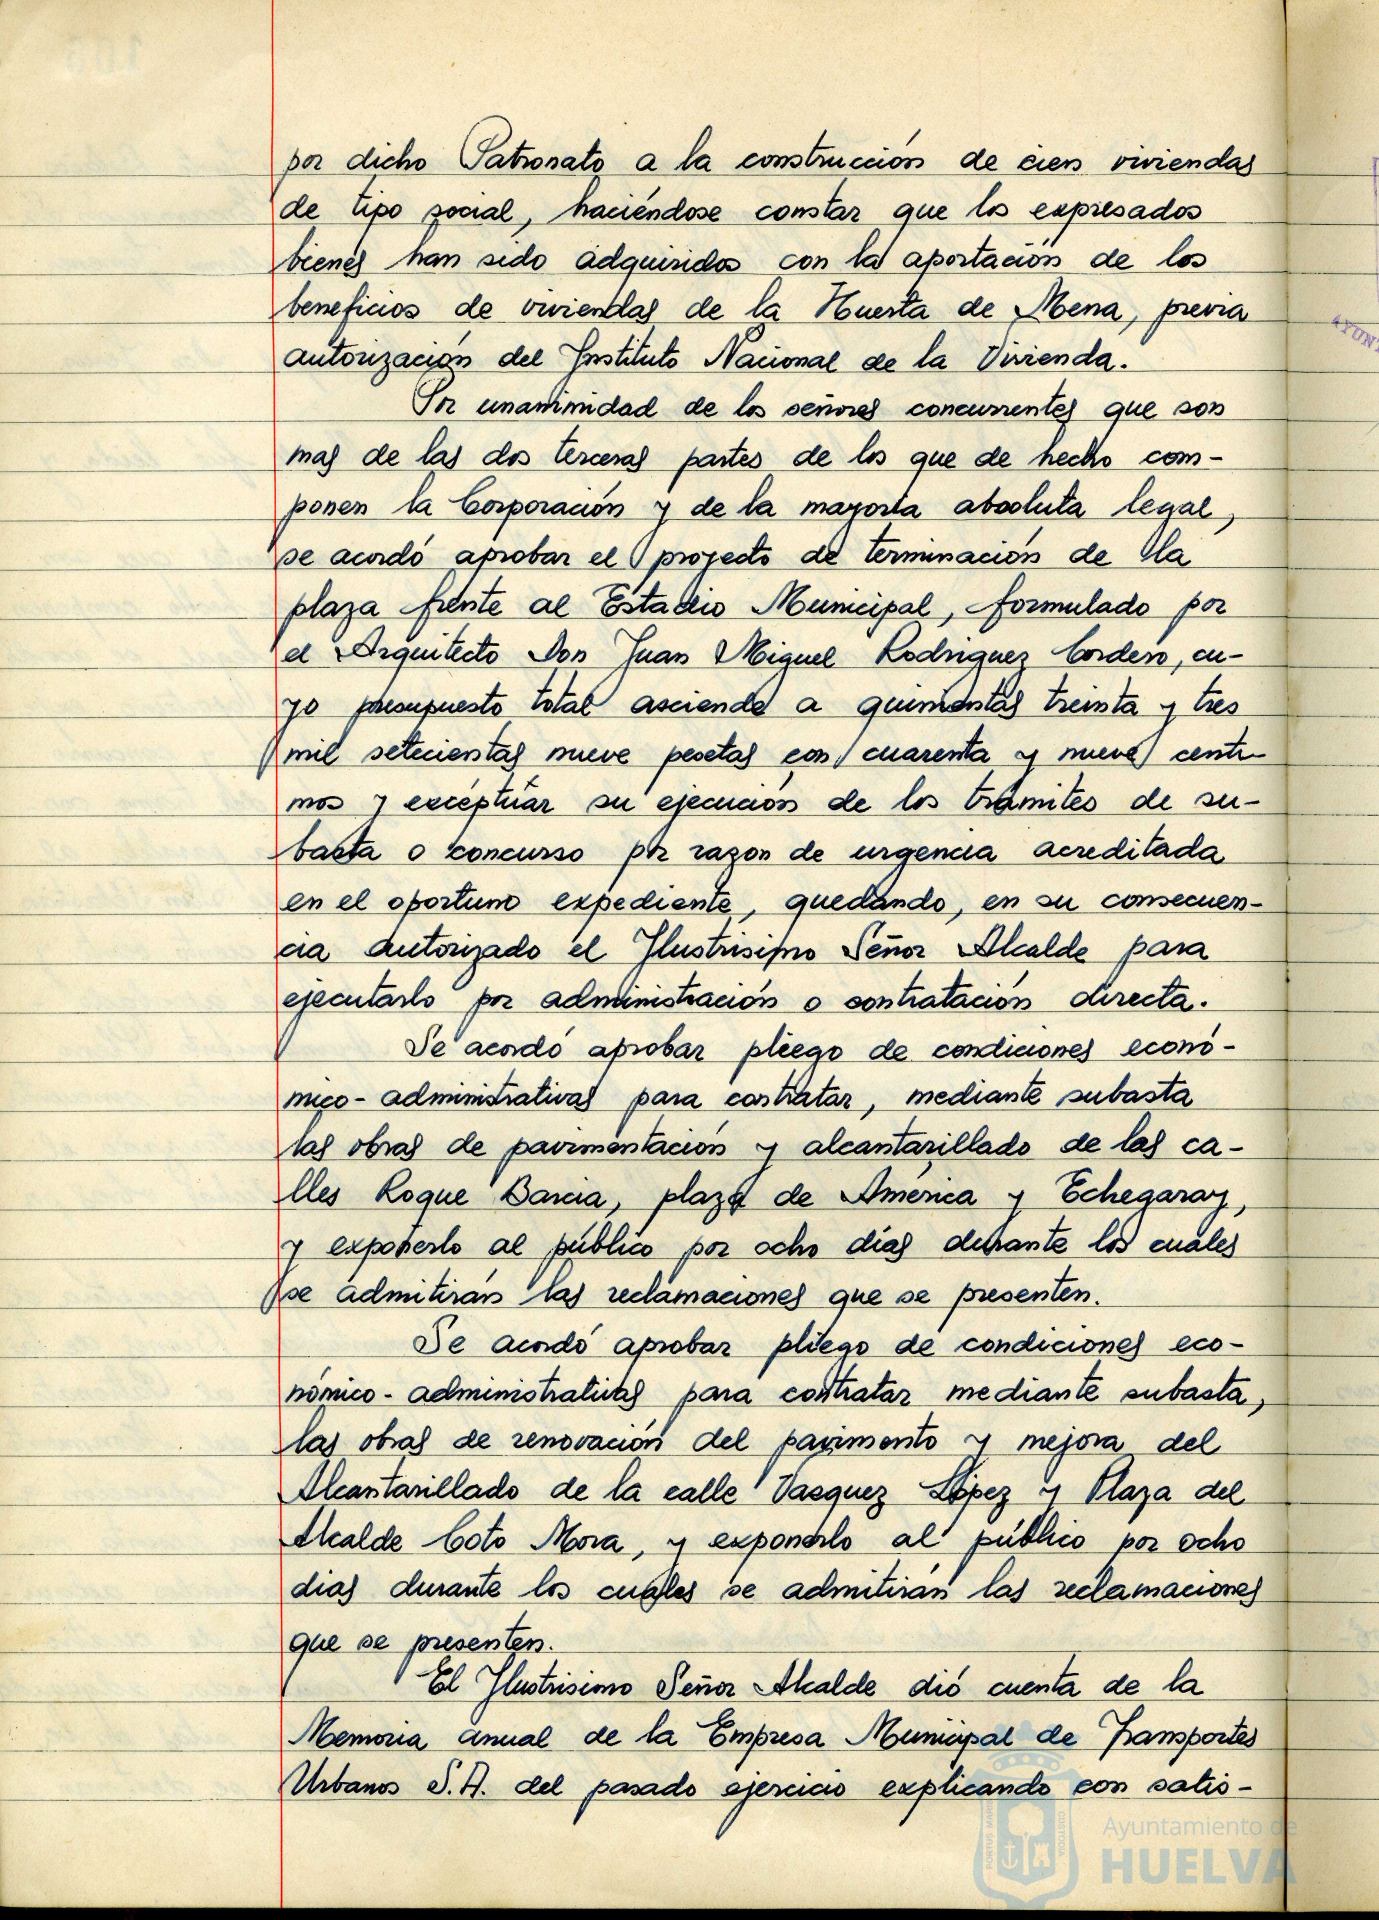 por dicho Patronato a la construcción de cien viviendas
de tipo social, haciéndose constar que los expresados
bienes han sido adquiridos con la aportación de los
beneficios de viviendas de la Huerta de Mena, previa
autorización del Instituto Nacional de la Vivienda.
Por unanimidad de los señores concurrentes que son
mas de las dos terceras partes de los que de hecho com-
ponen la Corporación y de la mayoria absoluta legal,
se acordó aprobar el proyecto de terminación de la
plaza frente al Estadio Municipal, formulado por
el Arquitecto Don Juan Miguel Rodriguez Cordero, cu-
yo presupuesto total asciende a quinientas treinta y tres
mil setecientas nueve pesetas con cuarenta y nueve centi-
mos y exceptuar su ejecución de los trámites de su-
basta o concurso por razon de urgencia acreditada
en el oportuno expediente, quedando, en su consecuen-
cia autorizado el Ilustrisimo Señor Alcalde para
ejecutarlo por administración o contratación directa.
Se acordó aprobar pliego de condiciones econó-
mico-administrativas para contratar, mediante subasta
las obras de pavimentación y alcantarillado de las ca-
lles Roque Barcia, plaza de América y Echegaray,
y exponerlo al público por ocho días durante los cuales
se admitirán las reclamaciones que se presenten.
Se acordó aprobar pliego de condiciones eco-
nómico-administrativas para contratar mediante subasta,
las obras de renovación del pavimento y mejora del
Alcantarillado de la calle Vasquez López y Plaza del
Alcalde Coto Mora, y exponerlo al público por ocho
dias durante los cuales se admitirán las reclamaciones
que se presenten.
El Ilustrisimo Señor Alcalde dió cuenta de la
Memoria anual de la Empresa Municipal de Transportes
Urbanos S.A. del pasado ejercicio explicando con satis-
Ayuntamiento de
HUELVA